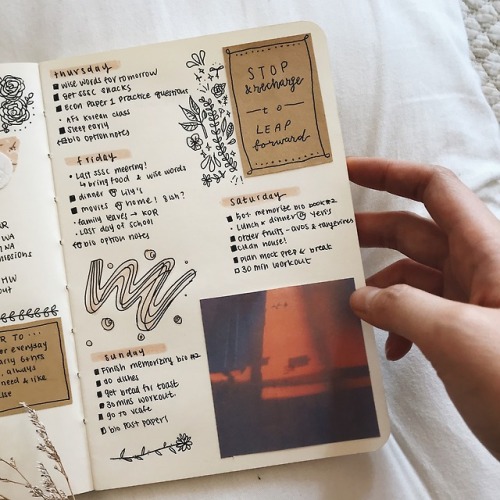 MW
R TO ...
r everyday
arly 6ones
always
need & like
thursday
wise words for tomorrow
get SSSC snacks
econ Paper 1 practice questions
AFS Korean class
sleep early
bio option notes
friday
Last SSSC meeting!
bring food & wise words
dinner @ Lily's
movies @ home!
family leaves → KOR
Last day of school
bio option notes
sunday
Finish memorizing bio #2
do dishes
get bread for toast
30 mins workout.
go to vcafe
bio past paper!
STOP
& recharge
to
LEAP
forward
saturday
hot memorize bio book #2
Lunch & dinner @ Yeri's
order fruits - avos & tangerines
clean house!
plan mock prep & break
30 min workout